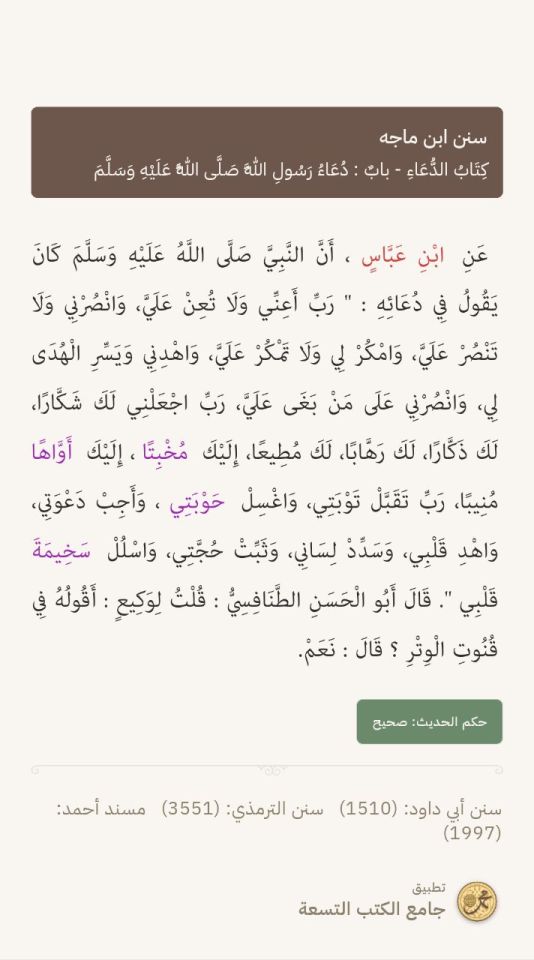 سنن ابن ماجه
كِتَابُ الدُّعَاءِ - بابٌ : دُعَاءُ رَسُولِ اللَّهِ صَلَّى اللَّهُ عَلَيْهِ وَسَلَّمَ
عَنِ ابْنِ عَبَّاسٍ ، أَنَّ النَّبِيَّ صَلَّى اللَّهُ عَلَيْهِ وَسَلَّمَ كَانَ
يَقُولُ فِي دُعَائِهِ : " رَبِّ أَعِنِّي وَلَا تُعِنْ عَلَيَّ، وَانْصُرْنِي وَلَا
تَنْصُرْ عَلَيَّ، وَامْكُرْ لِي وَلَا تَمْكُرْ عَلَيَّ، وَاهْدِنِي وَيَسِّرِ الْهُدَى
لِي، وَانْصُرْنِي عَلَى مَنْ بَغَى عَلَيَّ، رَبِّ اجْعَلْنِي لَكَ شَكَّارًا،
لَكَ ذَكَّارًا، لَكَ رَهَّابًا، لَكَ مُطِيعًا، إِلَيْكَ مُخْبِتًا ، إِلَيْكَ أَوَّاهًا
مُنِيبًا، رَبِّ تَقَبَّلْ تَوْبَتِي، وَاغْسِلْ حَوْبَتِي ، وَأَجِبْ دَعْوَتِي،
وَاهْدِ قَلْبِي، وَسَدِّدْ لِسَانِي، وَثَبِّتْ حُجَّتِي، وَاسْلُلْ سَخِيمَةَ
قَلْبِي ". قَالَ أَبُو الْحَسَنِ الطَّنَافِسِيُّ : قُلْتُ لِوَكِيعٍ : أَقُولُهُ فِي
قُنُوتِ الْوِتْرِ ؟ قَالَ : نَعَمْ.
حكم الحديث: صحيح
سنن أبي داود: (1510) سنن الترمذي: (3551) مسند أحمد:
(1997)
تطبيق
جامع الكتب التسعة